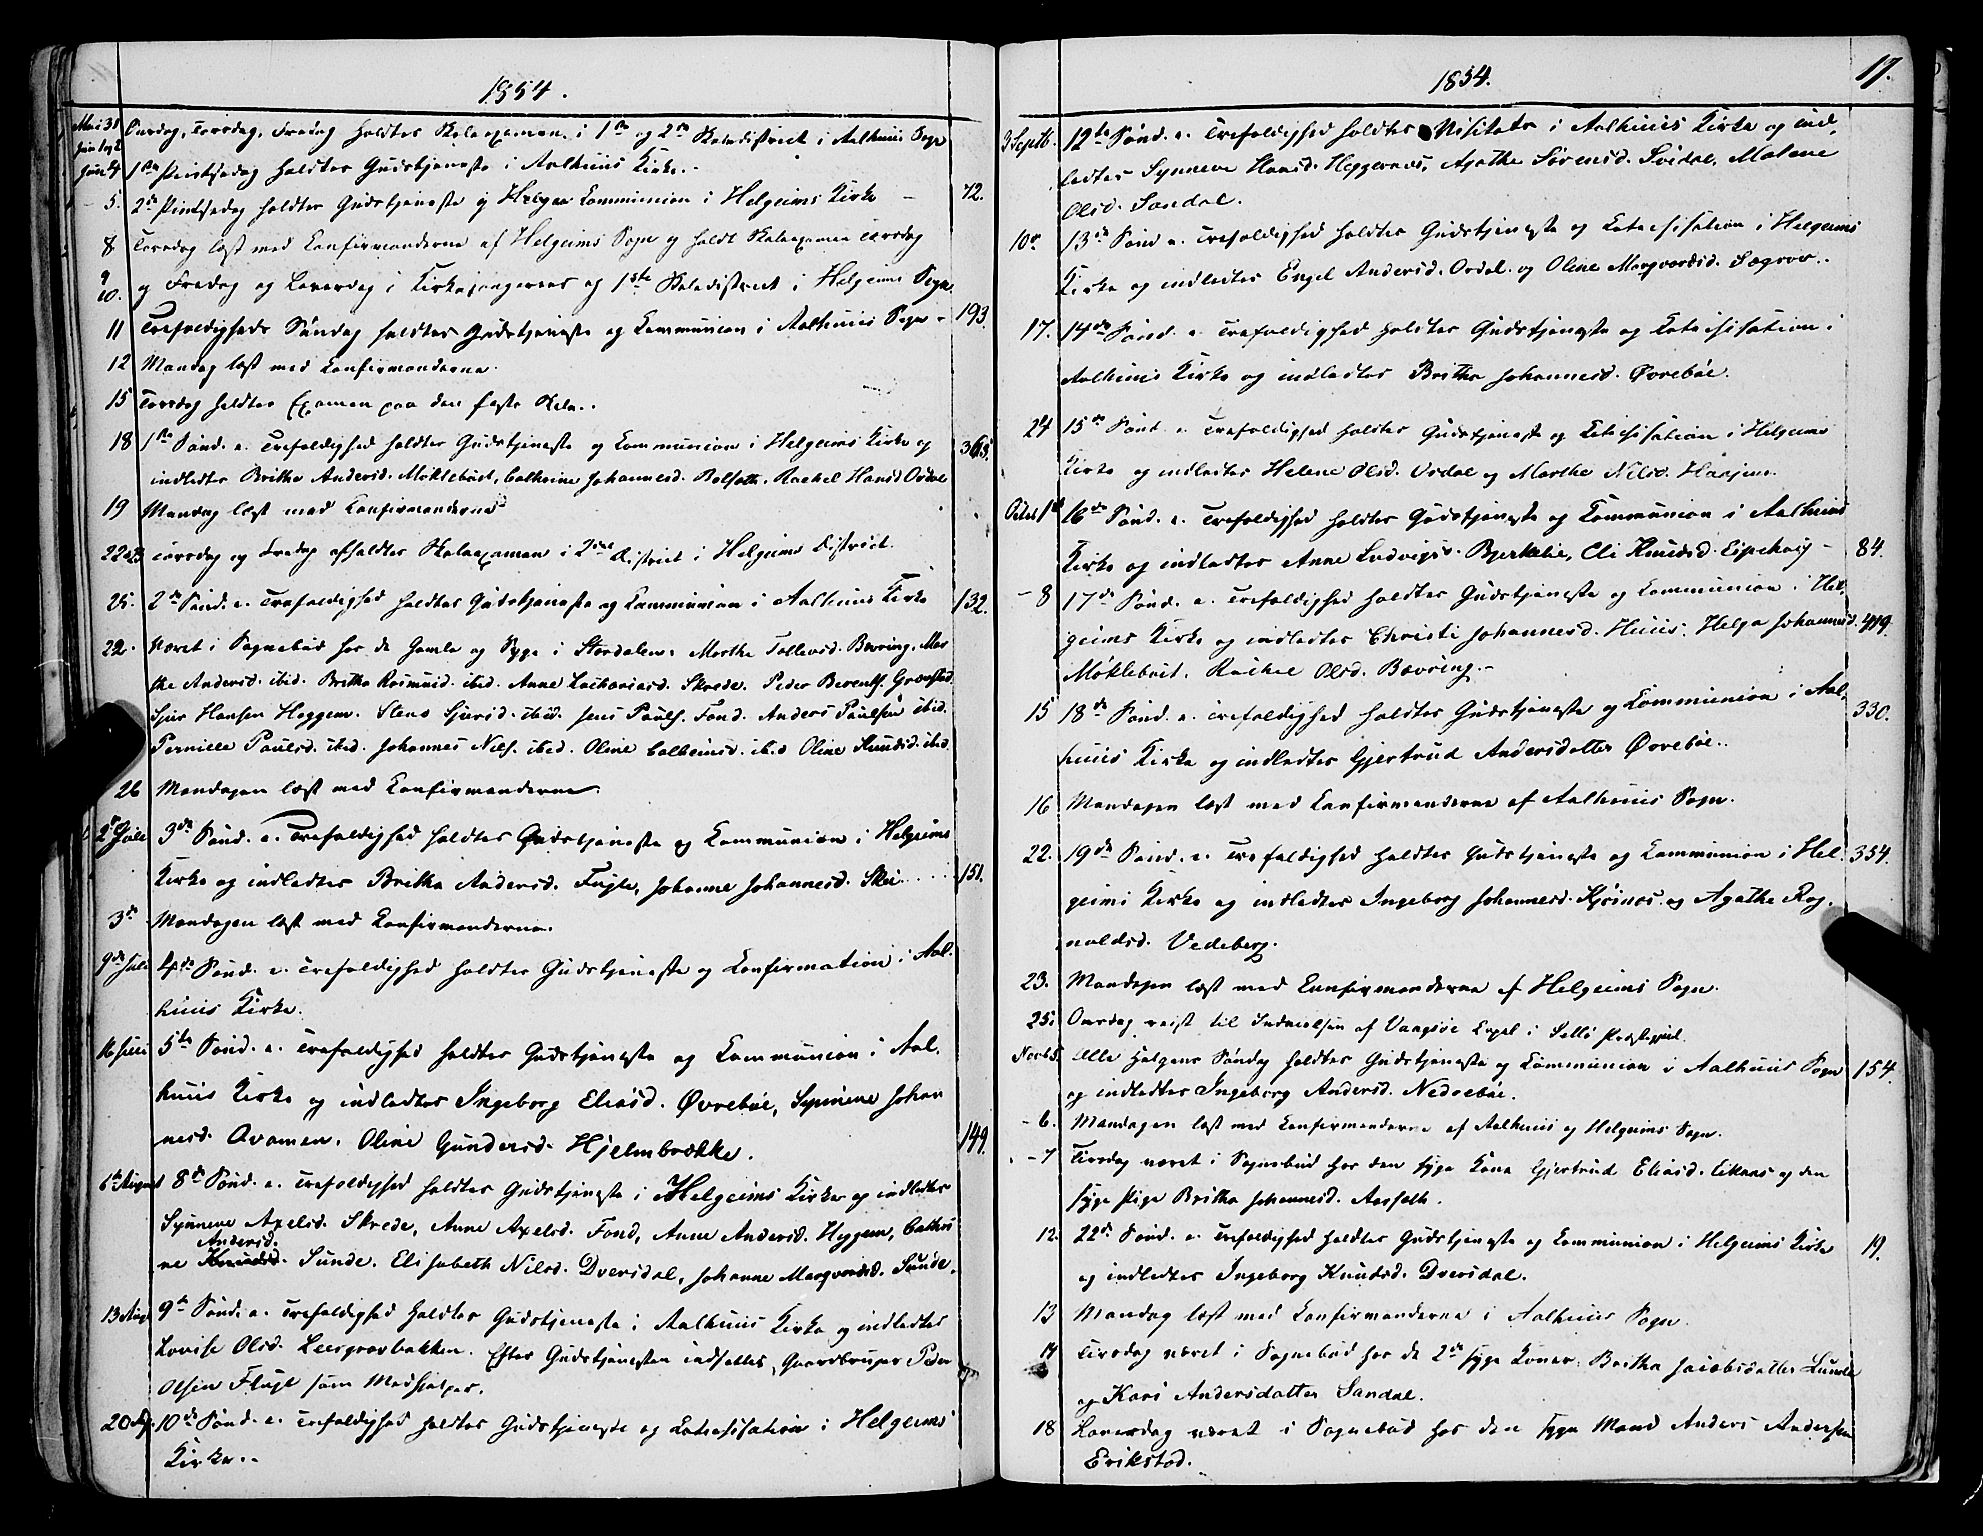 1854.
Mai 31 Onsdag, Torsdag, Fredag holdtes Skoleexamen i 1ste og 2den Skoledistrict i Aalhuus Sogn
Juni 1 og 2
Juni 4 1ste Pintsedag holdtes Gudstjeneste i Aalhuus Kirke.
5. 2den Pintsedag holdtes Gudstjeneste og Communion i Helgeims Kirke – 72.
8 Torsdag læst med Confirmanderne af Helgeims Sogn og holdt Skoleexamen Torsdag
9
10. og Fredag og Løverdag i Kirkesangerens og 1ste Skoledistrict i Helgeims Sogn
11 Trefoldigheds Søndag holdtes Gudstjeneste og Communion i Aalhuus Sogn – 193.
12 Mandag læst med Confirmanderne.
15 Torsdag holdtes Examen paa den faste Skole.
18 1ste Sønd. e. Trefoldighed holdtes Gudstjeneste og Communion i Helgeims Kirke og 365.
indledtes Britha Andersd. Møklebust, Cathrine Johannesd. Bolseth, Rachel Hansd Ordal
19 Mandag læst med Confirmanderne
22 23 Torsdag og Fredag afholdtes Skoleexamen i 2det District i Helgeims District.
25. 2den Sønd. e. Trefoldighed holdtes Gudstjeneste og Communion i Aalhuus Kirke 132.
22. Været i Sognebud hos de Gamle og Syge i Stardalen: Marthe Tollevsd. Bovring, Mar
the Andersd. ibid. Britha Rasmusd. ibid. Anne Zachariasd. Skrede. Peder Berents.
Sjur Hansen Heggem. Sjursd. ibid. Jens Pauls. Fond. Anders Paulsen ibid.
Pernille Paulsd. ibid. Johannes Nils. ibid. Oline ibid Oline Knudsd. ibid.
26 Mandagen læst med Confirmanderne.
2den Juli 3die Sønd. e. Trefoldighed holdtes Gudstjeneste og Communion i Helgeims
Kirke og indledtes Britha Andersd. Fugle, Johanne Johannesd. Skei . . . . 151.
3die Mandagen læst med Confirmanderne.
9de Juli 4de Sønd. e. Trefoldighed holdtes Gudstjeneste og Confirmation i Aal-
huus Kirke.
16 Juli 5te Sønd. e. Trefoldighed holdtes Gudstjeneste og Communion i Aal.
huus Kirke og indledtes Ingeborg Eliasd. Øvrebøe, Synneve Johan
nesd. Aramen. Oline Gundersd. Hjelmbrekke. 149.
6te August 8de Sønd. e. Trefoldighed holdtes Gudstjeneste i Helgeims Kirke og indledtes
Synneve Axelsd. Skrede, Anne Axelsd. Fond, Anne Andersd. Heggem, Cathri
Andersd.
ne Knudsd. Sunde. Elisabeth Nilsd. Dversdal, Johanne Marqvardsd. Sunde.
13 Aug. 9de Sønd. e. Trefoldighed holdtes Gudstjeneste i Aalhuus Kirke og indledtes
Lovise Olsd. Leergrovbakken. Efter Gudstjenesten indsattes Gaardbruger Peder
Olsen Flugt som Medhjelper.
20 10de Sønd. e. Trefoldighed holdtes Gudstjeneste og Catechisation i Helgeims
Kirke.
1854. 17.
3 Septb. 12te Sønd. e. Trefoldighed holdtes Visitats i Aalhuus Kirke og ind,
ledtes Synneve Hansd. Heggernæs, Agathe Sørensd. Svidal, Malene
Olsd. Sandal.
10de 13de Sønd e. Trefoldighed holdtes Gudstjeneste og Catechisation i Helgeims
Kirke og indledtes Engel Andersd. Ordal. og Oline Marqvardsd. Sægrov.
17. 14de Sønd. e. Trefoldighed holdtes Gudstjeneste og Catechisation i
Aalhuus Kirke og indledtes Britha Johannesd. Øvrebøe.
24 15de Sønd. e. Trefoldighed holdtes Gudstjeneste og Catechisation i Helgeims
Kirke og indledtes Helene Olsd. Ordal og Marthe Nilsd.
Octbr 1ste 16de Sønd. e. Trefoldighed holdtes Gudstjeneste og Communion i Aalhuus
Kirke og indledtes Anne Ludvigsd. Bjerkelie, Eli Knudsd. Eipehoug – 84.
– 8 17de Sønd. e. Trefoldighed holdtes Gudstjeneste og Communion i Hel,
geims Kirke og indledtes Christi Johannesd. Huus, Helga Johannesd. 419.
Møklebust. Rachel Olsd. Bævring. –
15 18de Sønd. e. Trefoldighed holdtes Gudstjeneste og Communion i Aal, 330.
huus Kirke og indledtes Gjertrud Andersdatter Øvrebøe.
16 Mandagen læst med Confirmanderne af Aalhuus Sogn.
22. 19de Sønd. e. Trefoldighed holdtes Gudstjeneste og Communion i Hel- 354.
geims Kirke og indledtes Ingeborg Johannesd. Kjøsnæs og Agathe Rag.
naldsd. Vedeberg.
23. Mandagen læst med Confirmanderne af Helgeims Sogn.
25. Onsdag reist til Indvielsen af Vaagsøe Capel i Sellø Præstegjæld.
Novb 5. Alle Helgens Søndag holdtes Gudstjeneste og Communion i Aalhuus Sogn 154.
og indledtes Ingeborg Andersd. Nedrebøe.
– 6. Mandagen læst med Confirmanderne af Aalhuus og Helgeims Sogn.
– 7 Tirsdag været i Sognebud hos den syge Kone Gjertrud Eliasd. Eiknæs og den
syge Pige Britha Johannesd. Aasseth.
12. 22de Sønd. e. Trefoldighed holdtes Gudstjeneste og Communion i Helgeims Kirke 19.
og indledtes Ingeborg Knudsd. Dversdal.
13 Mandag læst med Confirmanderne i Aalhuus Sogn.
14 Tirsdag været i Sognebud hos de 2de syge Koner: Britha Jacobsdatter Lunde
og Kari Andersdatter Sandal.
18 Løverdag været i Sognebud hos den syge Mand Anders Andersen
Erikstad.